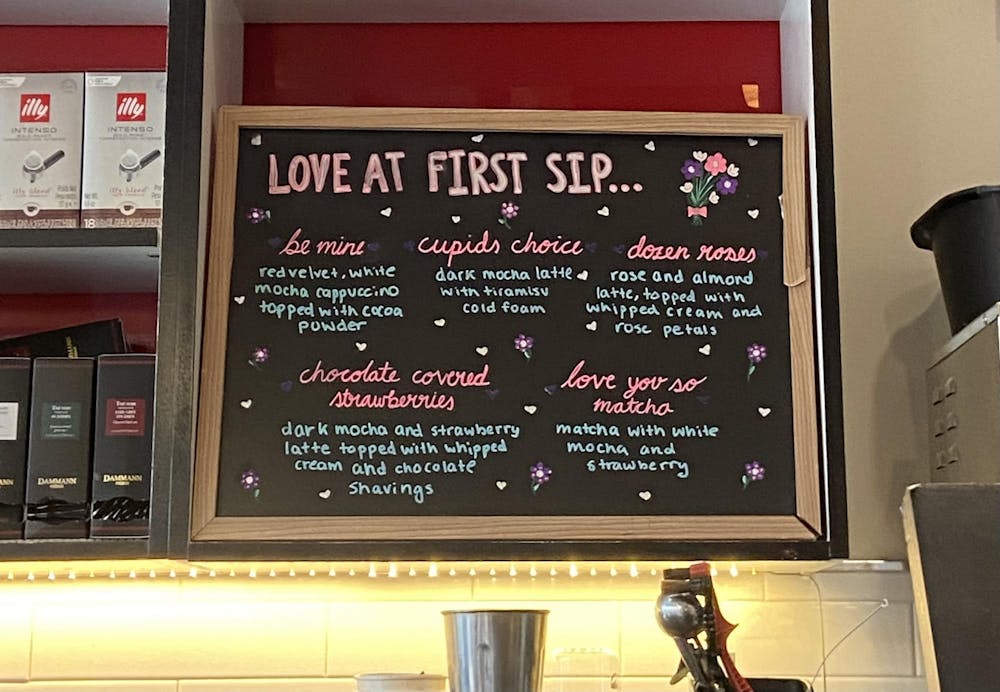 LOVE AT FIRST SIP...
be mine
red velvet, white
mocha cappuccino
topped with cocoa
powder
cupids choice
dark mocha latte
with tiramisu
cold foam
dozen roses
rose and almond
latte, topped with
whipped cream and
rose petals
chocolate covered
strawberries
dark mocha and strawberry
latte topped with whipped
cream and chocolate
shavings
love you so
matcha
matcha with white
mocha and
strawberry
illy
INTENSO
illy
INTENSO
illy blend
18
DAMMANN
DAMMANN